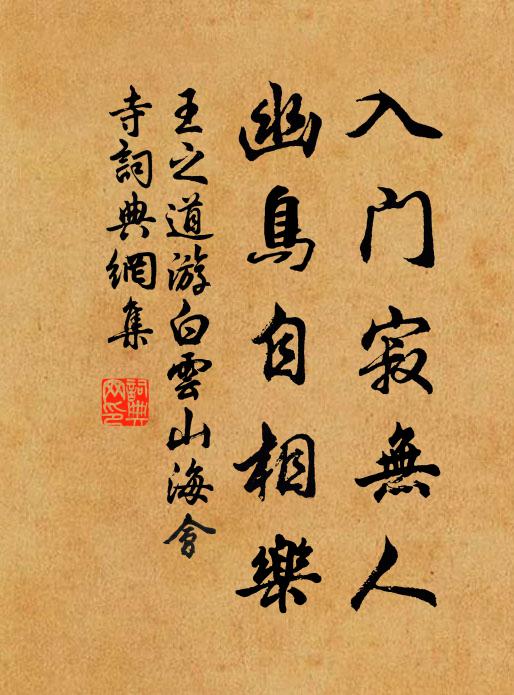 入門寂無人
幽鳥自相樂
王之道游白雲山海會
寺詞典網集
詞典網印